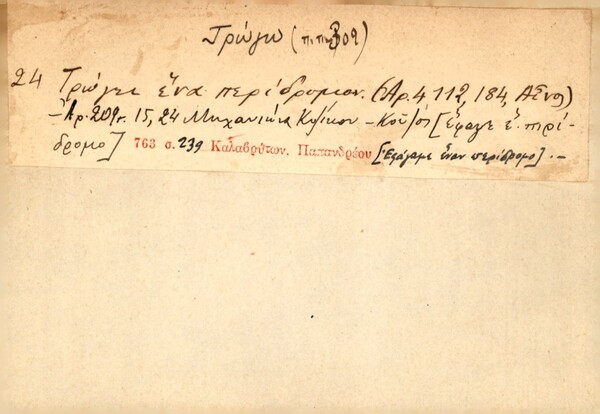 Τρώγω (π.πιν 309)
24 Τρώγει ἕνα περίδρομον. (Ἀρ. 4 112, 184, Αἶνος)
– Ἀρ. 209 σ. 15, 24 Μηχανιώνα Κυζίκου – [ἔφαγε ἕ. περί-
δρομο] 763 σ. 239 Καλαβρύτων. Παπανδρέου [Ἐφάγαμε ἕναν περίδρομο]. –